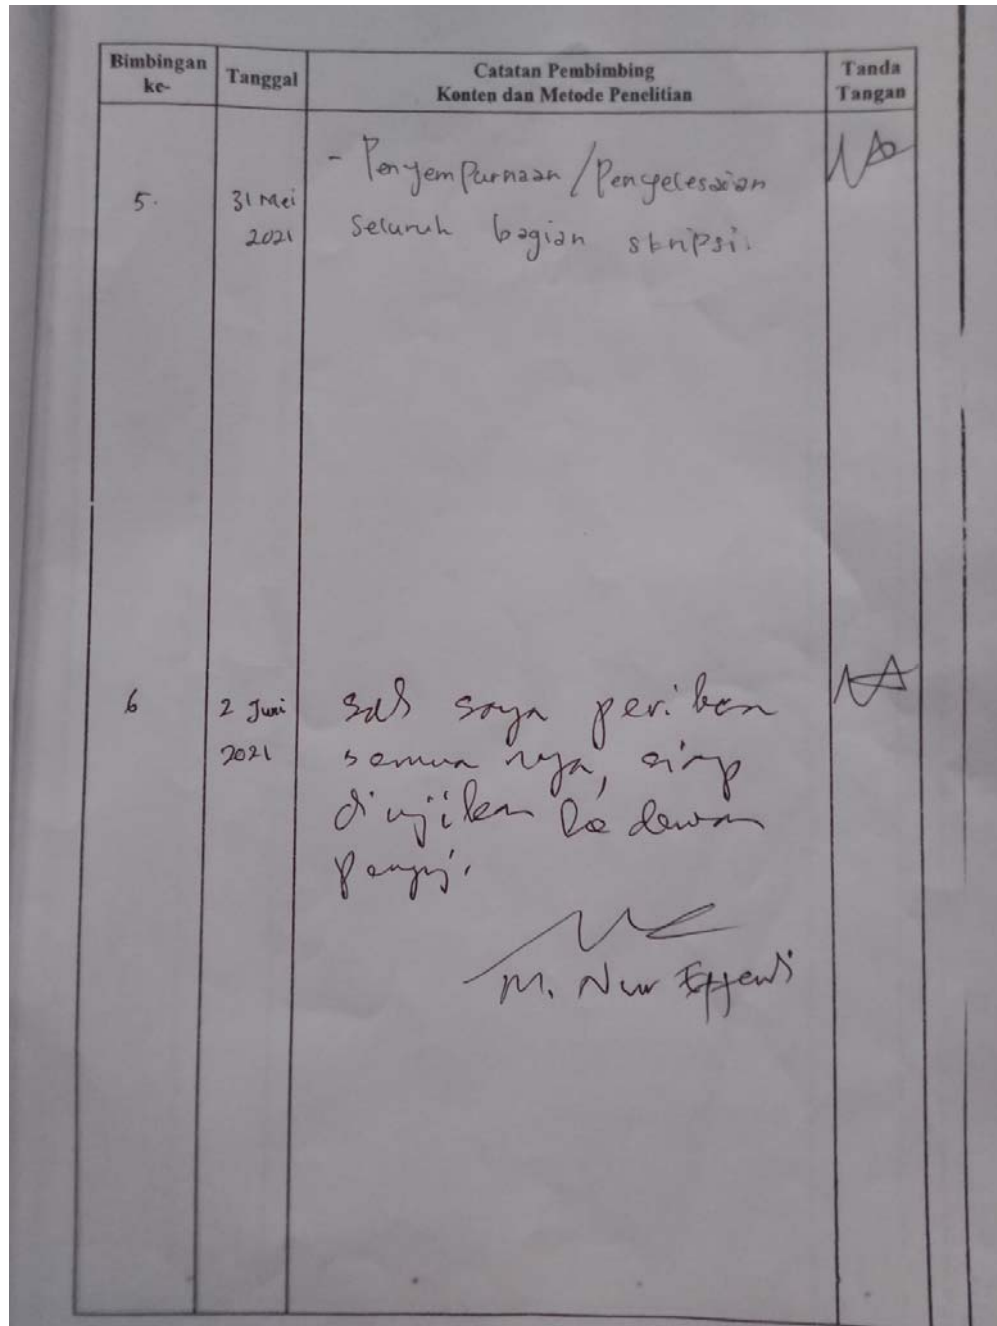 Bimbingan ke-
Tanggal
Catatan Pembimbing
Konten dan Metode Penelitian
Tanda Tangan
5.
31 Mei
2021
- Penyempurnaan / Penyelesaian
Seluruh bagian skripsi.
6
2 Juni
2021
saya
semua nya, siap
diujikan ke dewan
penguji.
M. Nur Effendi